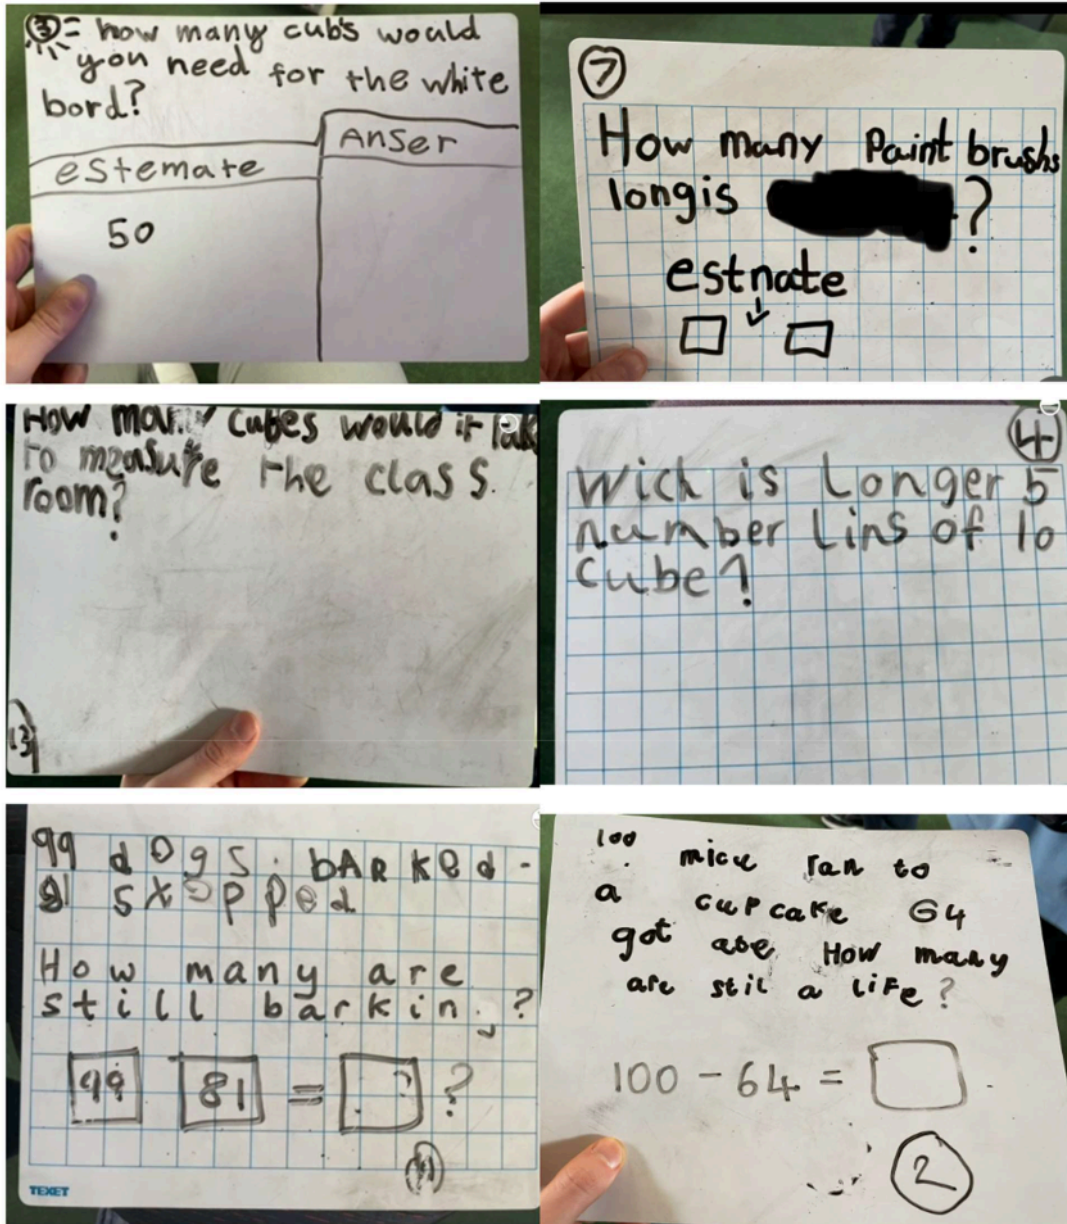 ③= how many cubs would
you need for the white
bord?
estemate
Anser
50
⑦
How many Paint brushs
longis ?
estnate
How many cubes would it take
to measure the class
room?
13
④
Wich is Longer 5
number Lins of 10
cube?
99 dogs. bARKed
81 stopped
How many are
still barkin. ?
99 81 = ?
TEXET
100 mice ran to
a cupcake 64
got ate How many
are stil a life?
100 - 64 =
②